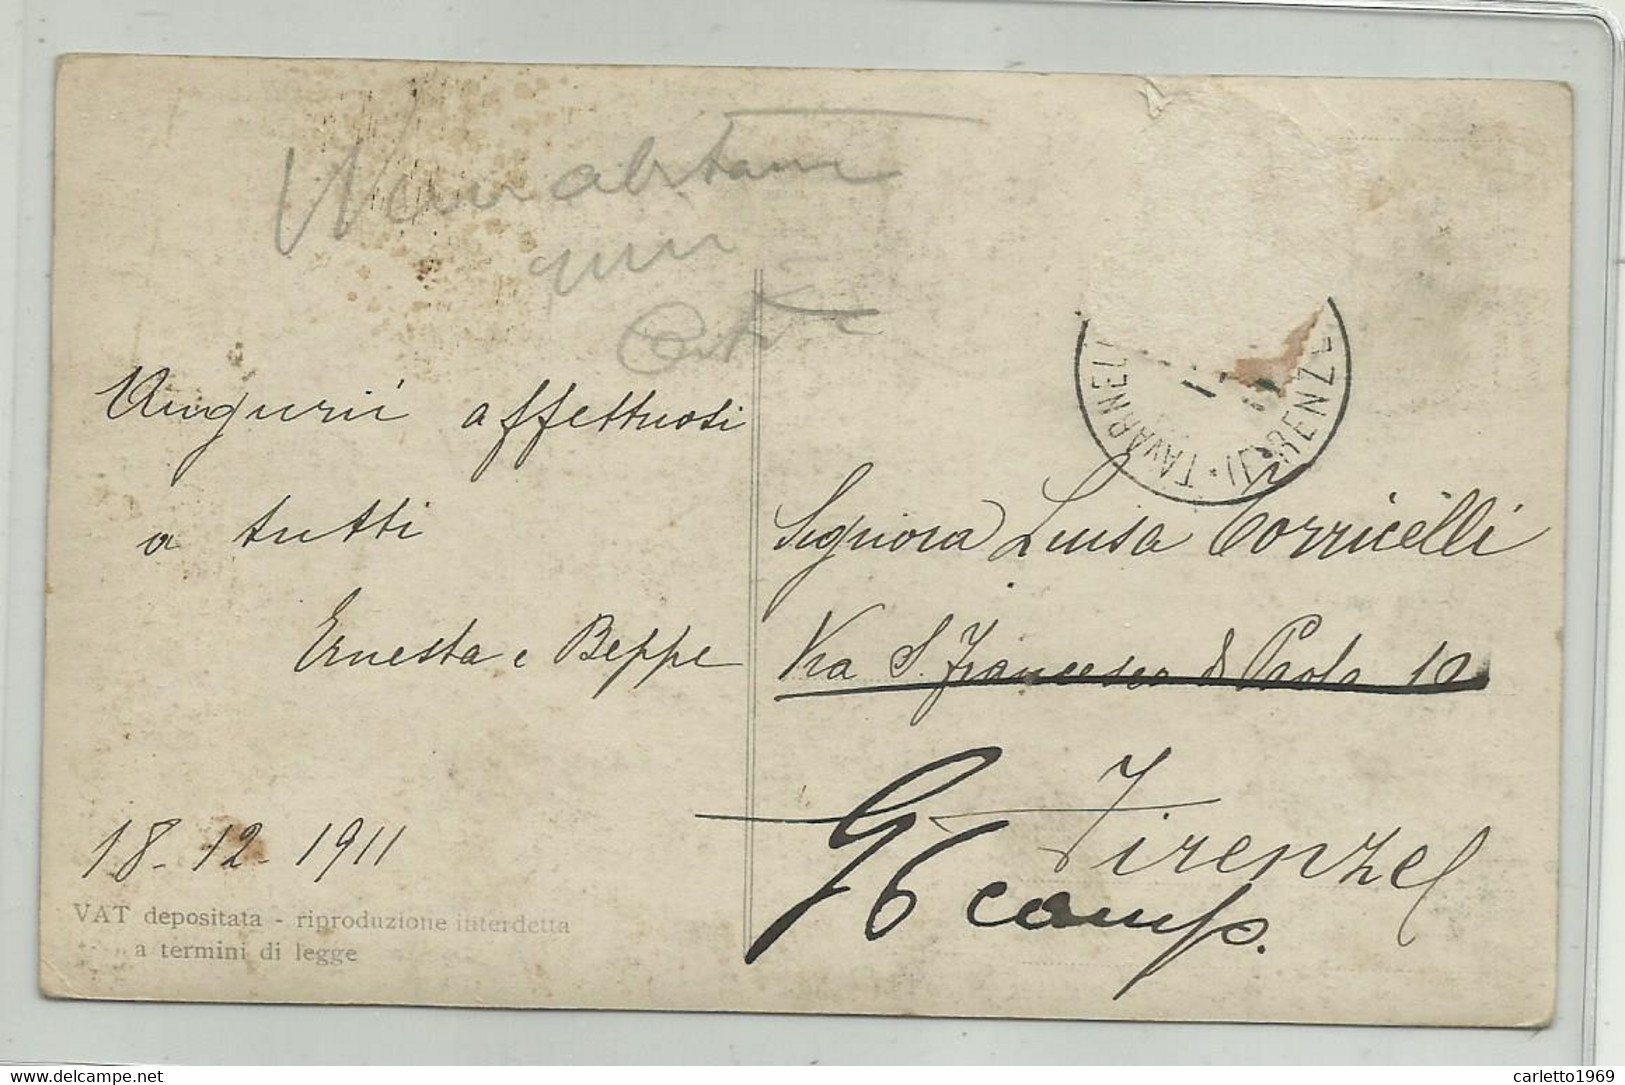 Augurii affettuosi
a tutti
Ernesta e Beppe
18-12-1911
VAT depositata - riproduzione interdetta
a termini di legge
TAVARNELL
(FIRENZE)
Signora Luisa Torricelli
Via S. Francesco di Paola 10
Firenze
96 camp.
delcampe.net
carletto1969